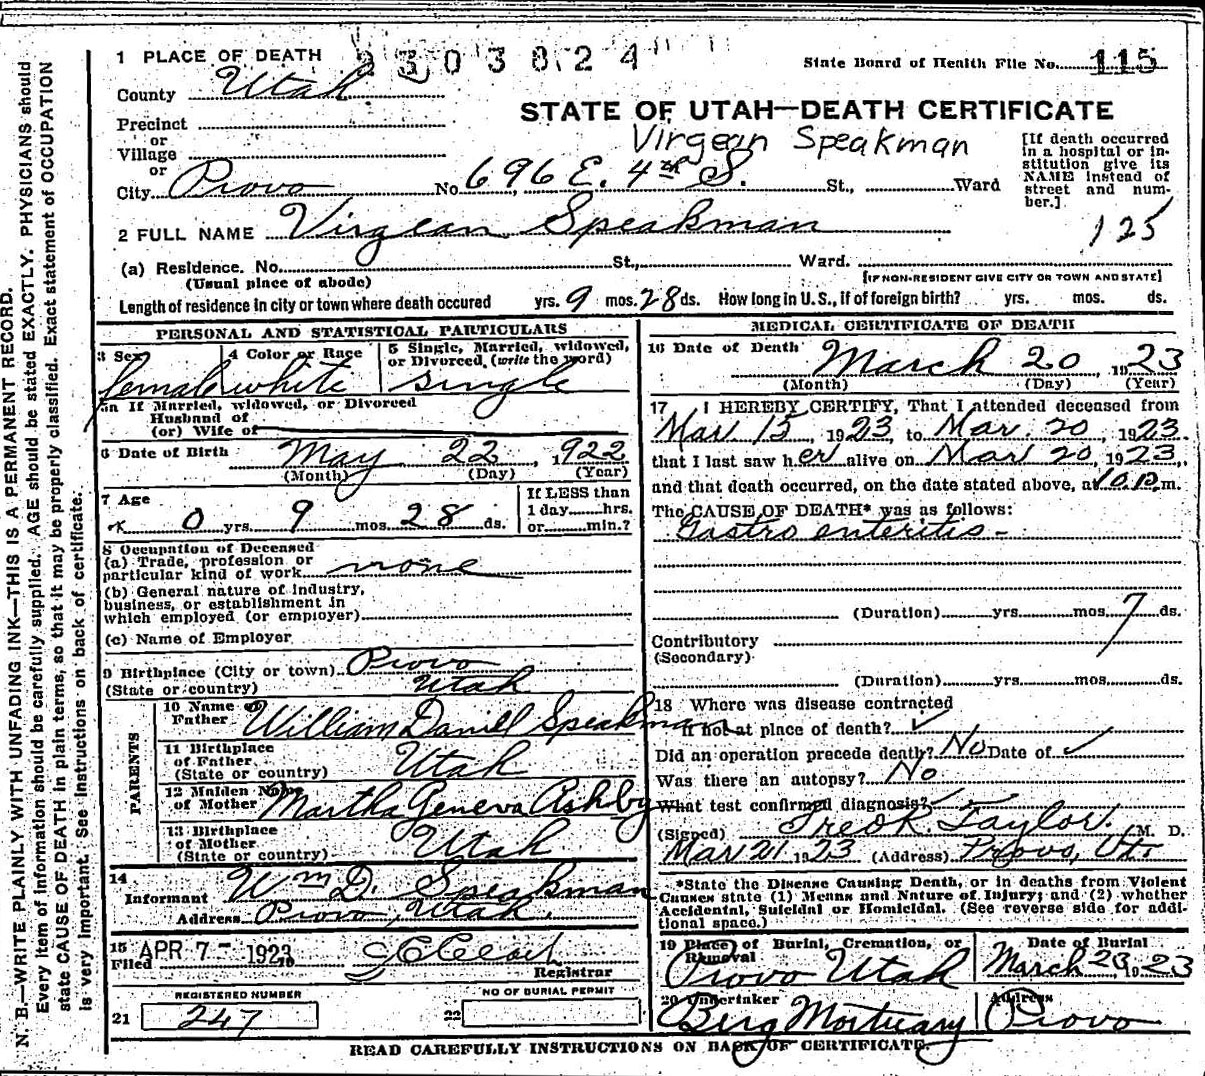 1 PLACE OF DEATH 2303824 State Board of Health File No. 115
County Utah
STATE OF UTAH—DEATH CERTIFICATE
Precinct
or
Village
or
Virgean Speakman
City Provo No. 696 E. 4th S. St., Ward
[If death occurred
in a hospital or in-
stitution give its
NAME instead of
street and num-
ber.]
2 FULL NAME Virgean Speakman
125
(a) Residence. No. St., Ward.
(Usual place of abode) [IF NON-RESIDENT GIVE CITY OR TOWN AND STATE]
Length of residence in city or town where death occured yrs. 9 mos. 28 ds. How long in U. S., if of foreign birth? yrs. mos. ds.
PERSONAL AND STATISTICAL PARTICULARS
3 Sex female
4 Color or Race white
5 Single, Married, widowed,
or Divorced, (write the word)
single
5a If Married, widowed, or Divorced
Husband of
(or) Wife of
6 Date of Birth May 22, 1922
(Month) (Day) (Year)
7 Age
0 yrs. 9 mos. 28 ds.
If LESS than
1 day......hrs.
or......min.?
8 Occupation of Deceased
(a) Trade, profession or
particular kind of work none
(b) General nature of industry,
business, or establishment in
which employed (or employer)
(c) Name of Employer
9 Birthplace (City or town) Provo
(State or country) Utah
PARENTS
10 Name of
Father William Daniell Speakman
11 Birthplace
of Father
(State or country) Utah
12 Maiden Name
of Mother Martha Geneva Ashby
13 Birthplace
of Mother
(State or country) Utah
14
Informant Wm D. Speakman
Address Provo, Utah.
15
Filed APR 7- 1923
Registrar
REGISTERED NUMBER
21 247
NO OF BURIAL PERMIT
22
MEDICAL CERTIFICATE OF DEATH
16 Date of Death March 20, 1923
(Month) (Day) (Year)
17 I HEREBY CERTIFY, That I attended deceased from
Mar. 15, 1923, to Mar. 20, 1923.
that I last saw her alive on Mar 20, 1923,
and that death occurred, on the date stated above, at 10 p.m.
The CAUSE OF DEATH* was as follows:
Gastro enteritis -
(Duration) yrs. mos. 7 ds.
Contributory
(Secondary)
(Duration) yrs. mos. ds.
18 Where was disease contracted
if not at place of death? ✓
Did an operation precede death? No Date of ✓
Was there an autopsy? No
What test confirmed diagnosis? ✓
(Signed) Fred R. Taylor. M. D.
Mar 21 1923 (Address) Provo, Ut.
*State the Disease Causing Death, or in deaths from Violent
Causes state (1) Means and Nature of Injury; and (2) whether
Accidental, Suicidal or Homicidal. (See reverse side for addi-
tional space.)
19 Place of Burial, Cremation, or
Removal
Provo Utah
Date of Burial
March 23, 1923
20 Undertaker
Berg Mortuary
Address
Provo
READ CAREFULLY INSTRUCTIONS ON BACK OF CERTIFICATE.
N. B.—WRITE PLAINLY WITH UNFADING INK—THIS IS A PERMANENT RECORD.
Every item of information should be carefully supplied. AGE should be stated EXACTLY. PHYSICIANS should
state CAUSE OF DEATH in plain terms, so that it may be properly classified. Exact statement of OCCUPATION
is very important. See instructions on back of certificate.